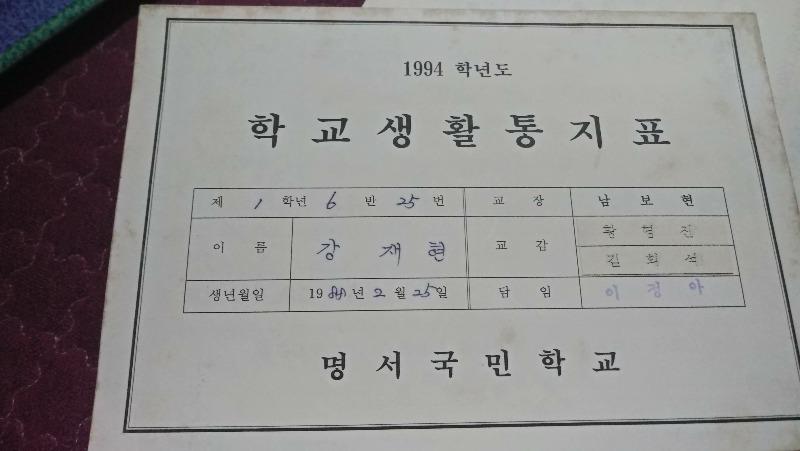 1994 학년도
학교생활통지표
제 1 학년 6 반 25 번 교장 남보현
이름 강재현 교감
김회석
생년월일 19 년 2 월 25 일 담임 이경아
명서국민학교